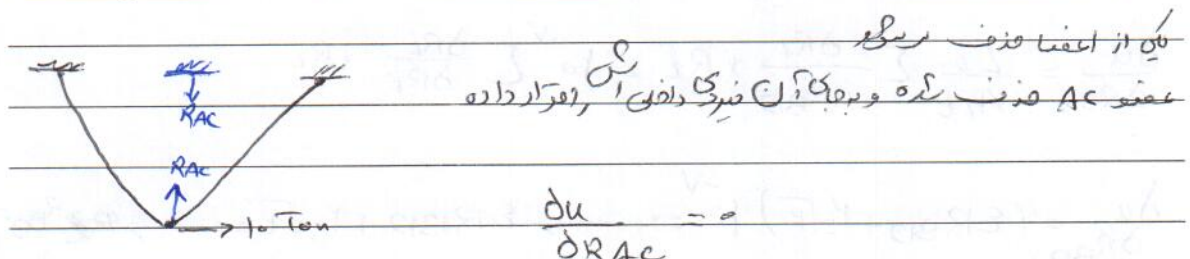 یکی از اعضا حذف میشود
عضو AC حذف شده و به جای آن نیروی داخلی اش را قرار داده
RAC
RAC
→ 10 Ton
∂u/∂RAC = 0